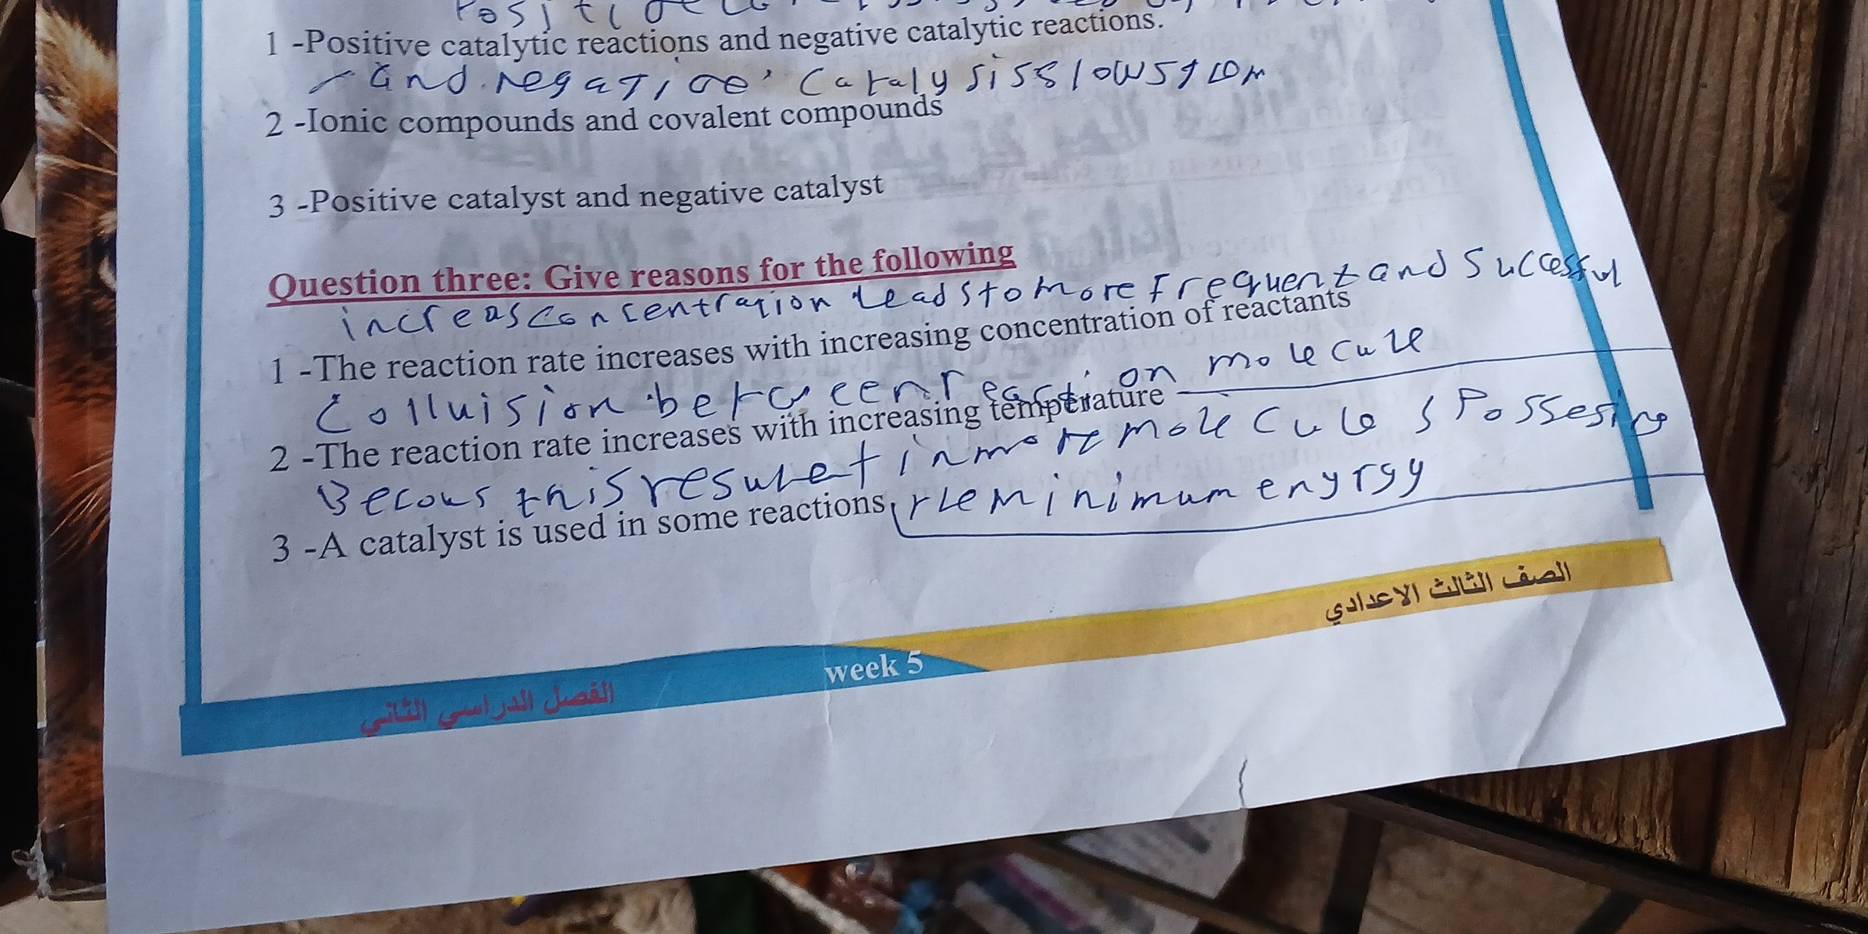 1 -Positive catalytic reactions and negative catalytic reactions.
and negative catalysis slows down
2 -Ionic compounds and covalent compounds
3 -Positive catalyst and negative catalyst
Question three: Give reasons for the following
increas concentration leads to more frequent and Succesful
1 -The reaction rate increases with increasing concentration of reactants
Colluision between reaction molecule
2 -The reaction rate increases with increasing temperature
Becous this resulet in more molecules Possesing
3 -A catalyst is used in some reactions
minimum enyrgy
الصف الثالث الاعدادي
week 5
الفصل الدراسي الثاني